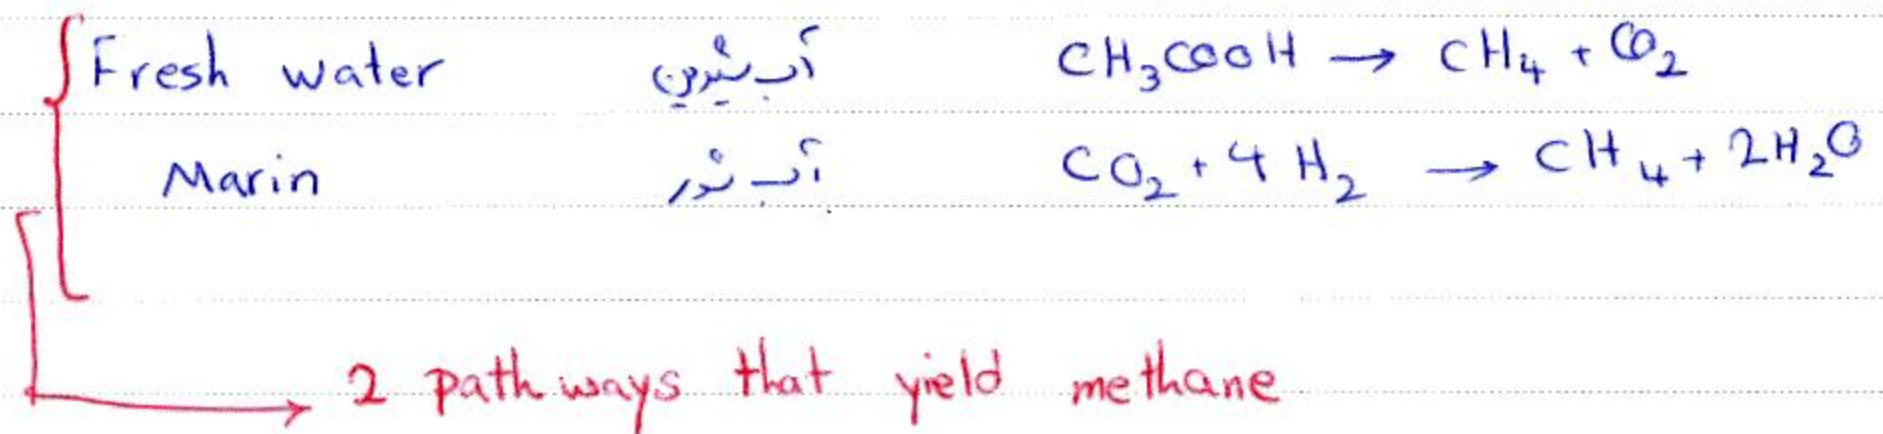 Fresh water آب شیرین CH₃COOH → CH₄ + CO₂
Marin آب شور CO₂ + 4 H₂ → CH₄ + 2H₂O
2 pathways that yield methane